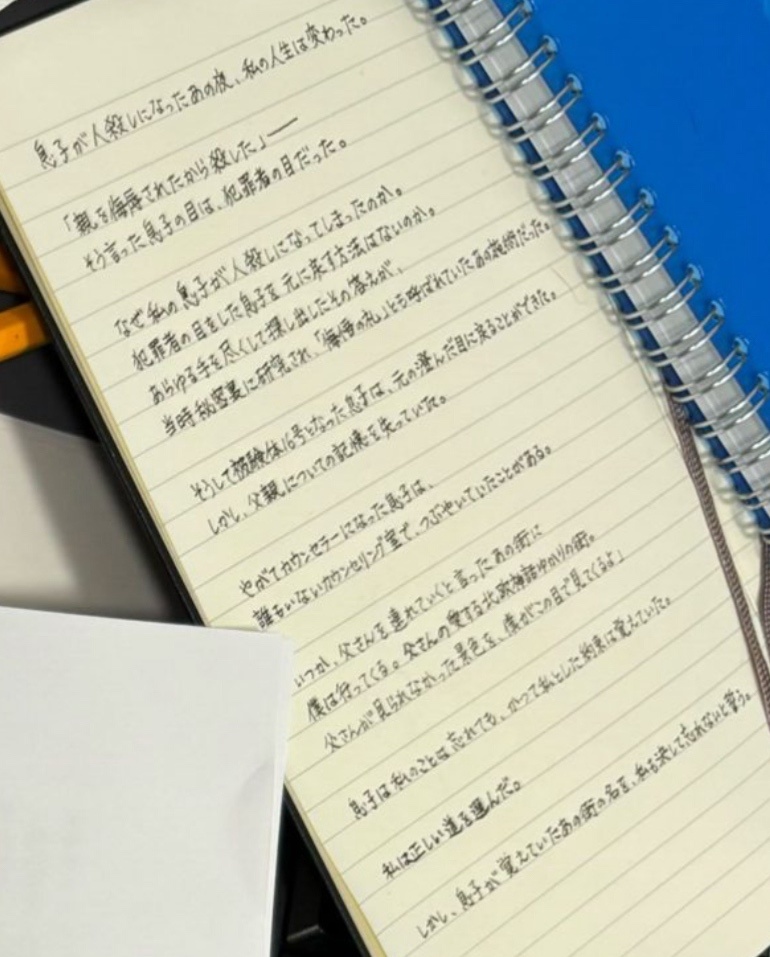 息子が人殺しになったあの夜、私の人生は変わった。
「親を侮辱されたから殺した」――
そう言った息子の目は、犯罪者の目だった。
なぜ私の息子が人殺しになってしまったのか。
犯罪者の目をした息子を元に戻す方法はないのか。
あらゆる手を尽くして探し出したその答えが、
当時秘密裏に研究され、「悔悟の礼」とも呼ばれていたあの施術だった。
そうして被験体16号となった息子は、元の澄んだ目に戻ることができた。
しかし、父親についての記憶を失っていた。
やがてカウンセラーになった息子は、
誰もいないカウンセリング室で、つぶやいていたことがある。
いつか、父さんを連れていくと言ったあの街に
僕は行ってくる。父さんの愛する北欧神話ゆかりの街。
父さんが見られなかった景色を、僕がこの目で見てくるよ」
息子は私のことは忘れても、かつて私とした約束は覚えていた。
私は正しい道を選んだ。
しかし、息子が覚えていたあの街の名を、私も決して忘れないと誓う。